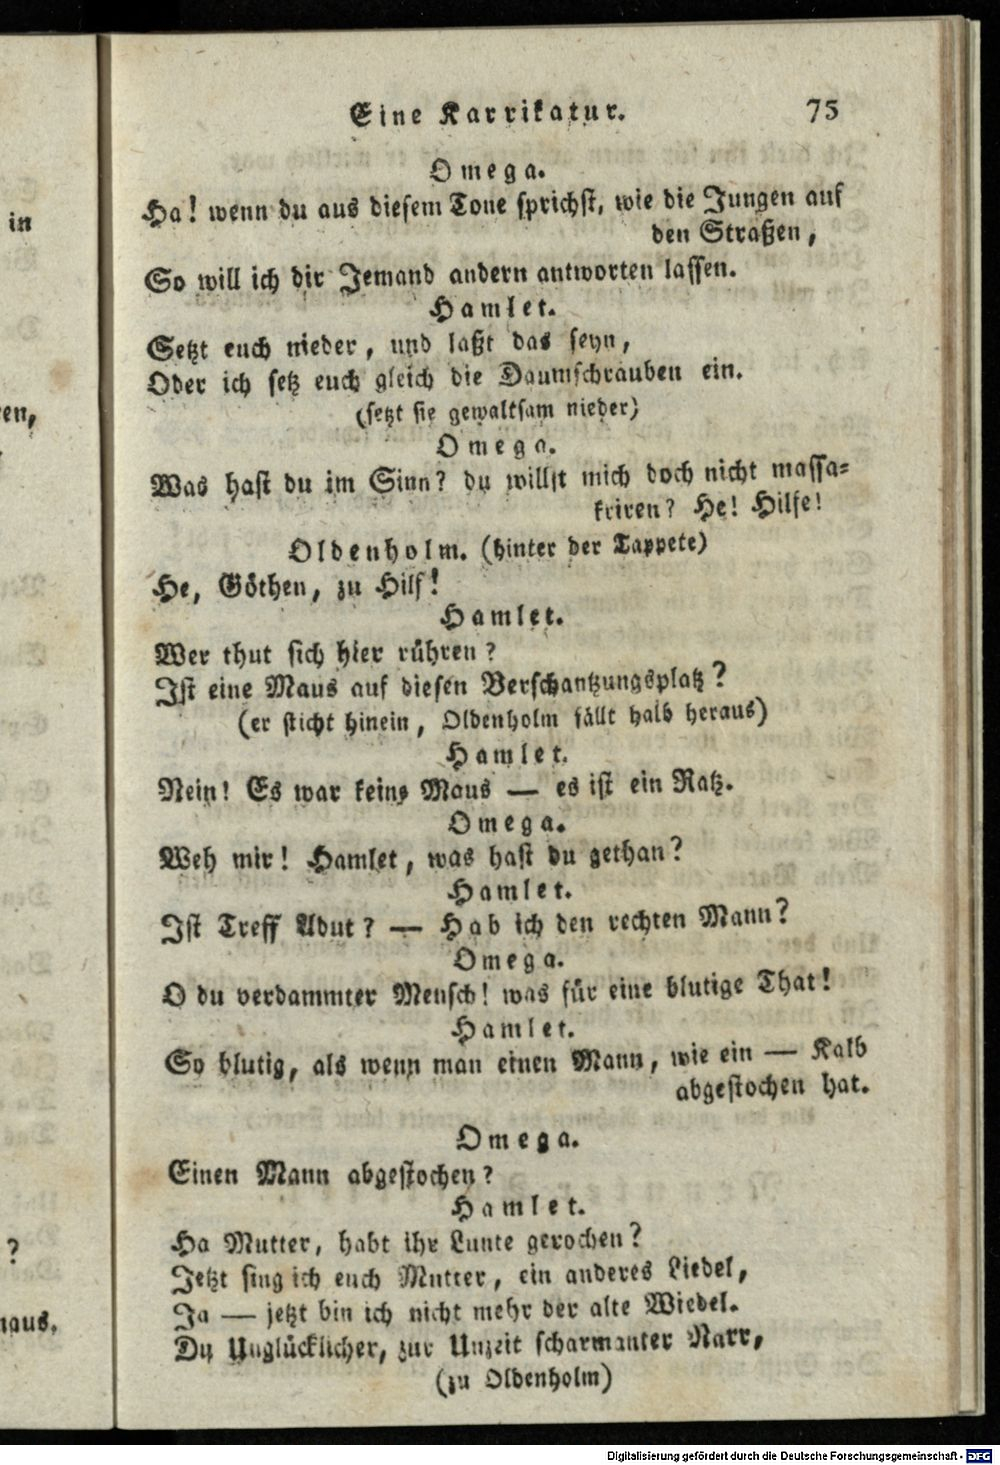 Eine Karrikatur. 75
Omega.
Ha! wenn du aus diesem Tone sprichst, wie die Jungen auf
den Straßen,
So will ich dir Jemand andern antworten lassen.
Hamlet.
Setzt euch nieder, und laßt das seyn,
Oder ich setz euch gleich die Daumschrauben ein.
(setzt sie gewaltsam nieder)
Omega.
Was hast du im Sinn? du willst mich doch nicht massa-
kriren? He! Hilfe!
Oldenholm. (hinter der Tappete)
He, Göthen, zu Hilf!
Hamlet.
Wer thut sich hier rühren?
Ist eine Maus auf diesen Verschantzungsplatz?
(er sticht hinein, Oldenholm fällt halb heraus)
Hamlet.
Nein! Es war keine Maus — es ist ein Ratz.
Omega.
Weh mir! Hamlet, was hast du gethan?
Hamlet.
Ist Treff Adut? — Hab ich den rechten Mann?
Omega.
O du verdammter Mensch! was für eine blutige That!
Hamlet.
So blutig, als wenn man einen Mann, wie ein — Kalb
abgestochen hat.
Omega.
Einen Mann abgestochen?
Hamlet.
Ha Mutter, habt ihr Lunte gerochen?
Jetzt sing ich euch Mutter, ein anderes Liedel,
Ja — jetzt bin ich nicht mehr der alte Wiedel.
Du Unglücklicher, zur Unzeit scharmanter Narr,
(zu Oldenholm)
in
en,
?
aus.
Digitalisierung gefördert durch die Deutsche Forschungsgemeinschaft - DFG